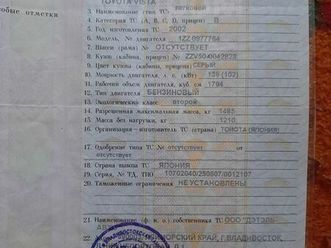 обые отметки
TOYOTA VISTA
3. Наименование (тип ТС) легковой
4. Категория ТС (А, В, С, D, прицеп) B
5. Год изготовления ТС 2002
6. Модель, № двигателя 1ZZ 0977764
7. Шасси (рама) № ОТСУТСТВУЕТ
8. Кузов (кабина, прицеп) № ZZV50-0042828
9. Цвет кузова (кабины, прицепа) СЕРЫЙ
10. Мощность двигателя, л. с. (кВт)
11. Рабочий объем двигателя, куб. см 1794
12. Тип двигателя БЕНЗИНОВЫЙ
13. Экологический класс второй
14. Разрешенная максимальная масса, кг 1485
15. Масса без нагрузки, кг 1210
16. Организация-изготовитель ТС (страна) ТОЙОТА (ЯПОНИЯ)
17. Одобрение типа ТС № отсутствует от
отсутствует
18. Страна вывоза ТС ЯПОНИЯ
19. Серия, № ТД, ТПО 10702040/250607/0012107
20. Таможенные ограничения НЕ УСТАНОВЛЕНЫ
21. Наименование (ф. и. о.) собственника ТС ООО
КРАЙ, Г.ВЛАДИВОСТОК,